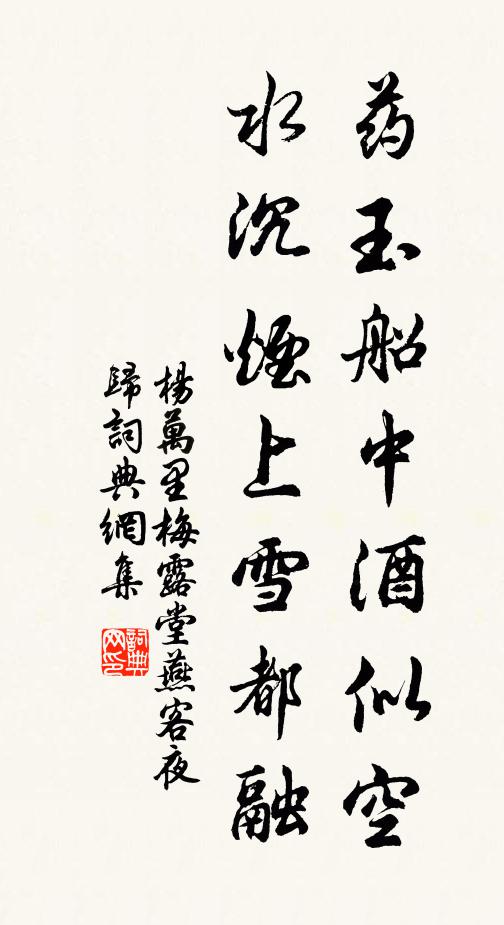 药玉船中酒似空
水沉煙上雪都融
楊萬里梅露堂燕客夜
歸詞典網集
詞典
网印